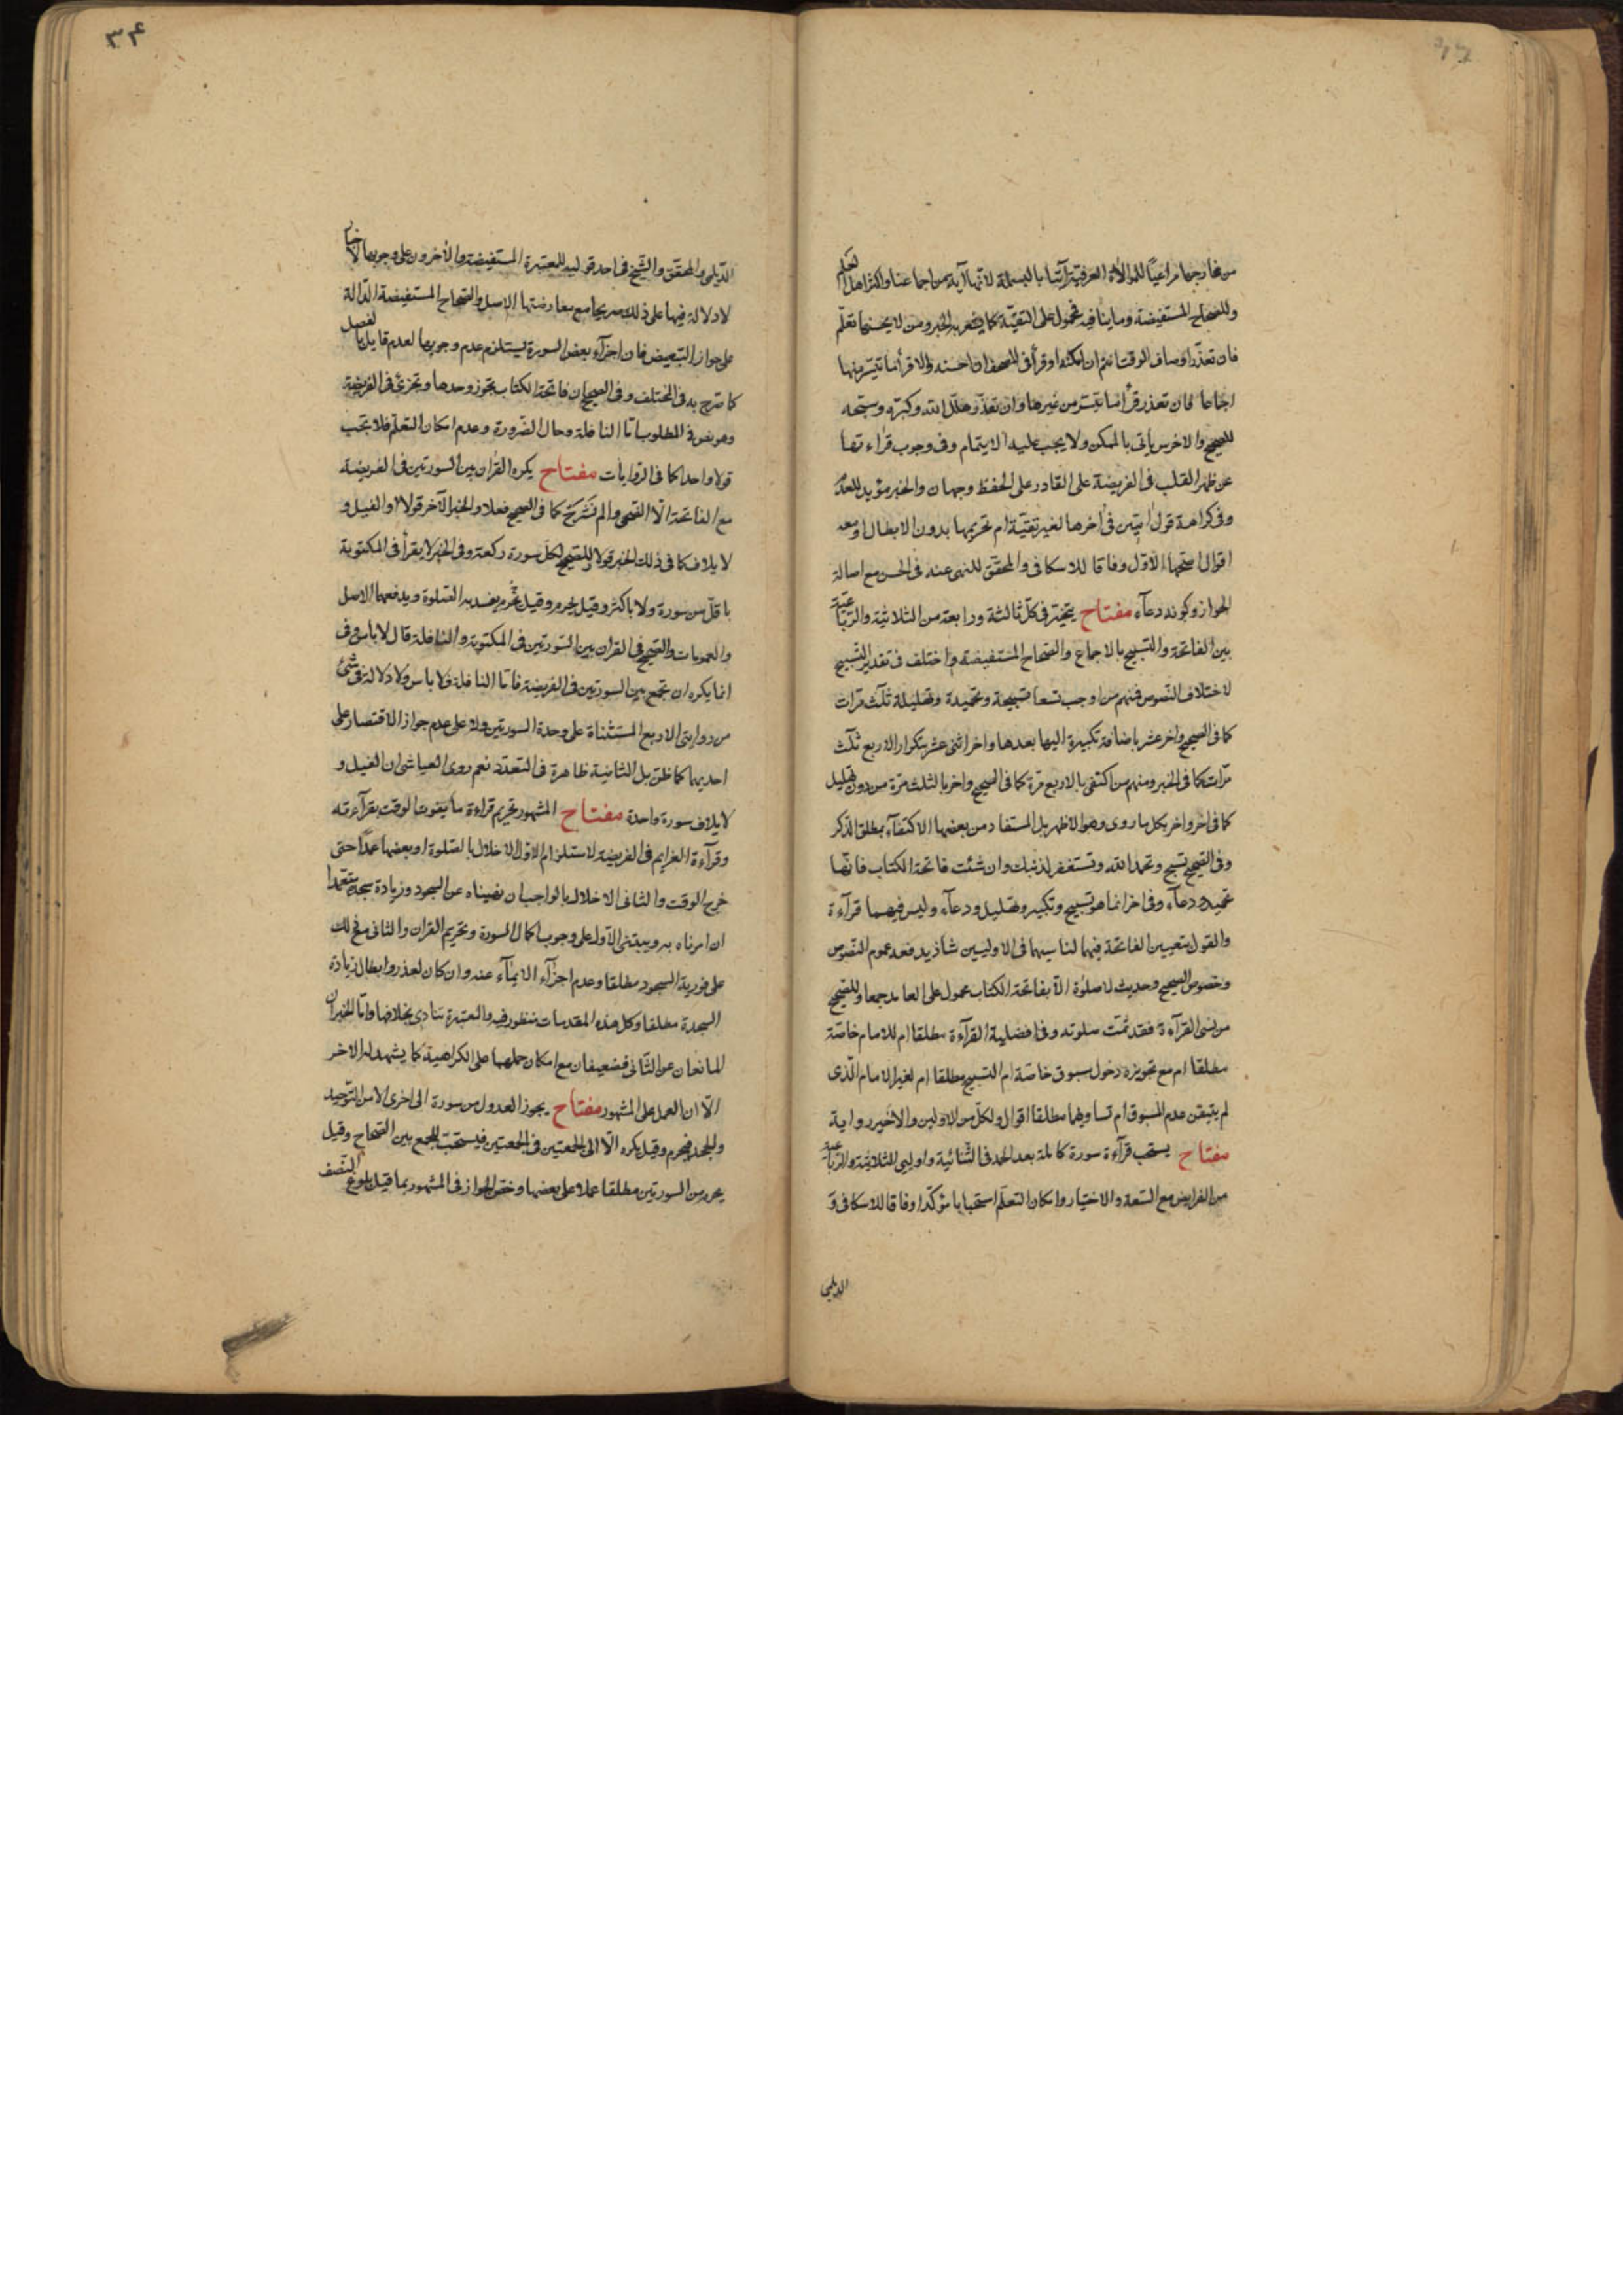 من مخارجها مراعيًا للموالاة العرفية آتيا بالبسملة لانها آية من اجماعنا واكثر اهل العلم
وللصحاح المستفيضة وما ينافيه محمول على التقية كما يشعر به الخبر ومن لا يحسنها تعلم
فان تعذر او ضاق الوقت ائتم ان امكنه او قرأ في المصحف ان احسنه والا قرأ ما تيسر منها
اجماعا فان تعذر قرأ ما تيسر من غيرها وان تعذر هلل الله وكبّره وسبحه
للصحيح والاخرس يأتي بالممكن ولا يجب عليه الايتمام وفي وجوب قراءتها
عن ظهر القلب في الفريضة على القادر على الحفظ وجهان والخبر مؤيد للعدم
وفي كراهة قول امين في اخرها لغير تقية ام تحريمها بدون الابطال او معه
اقوال اصحها الاول وفاقا للاسكافي والمحقق للنهي عنه في الحسن مع اصالة
الجواز وكونه دعاء مفتاح يتخير في كل ثالثة ورابعة من الثلاثية والرباعية
بين الفاتحة والتسبيح بالاجماع والصحاح المستفيضة واختلف في تقدير التسبيح
لاختلاف النصوص فمنهم من اوجب تسعا تسبيحة وتحميدة وتهليلة ثلث مرات
كما في الصحيح واخر عشر باضافة تكبيرة اليها بعدها واخر اثنى عشر بتكرار الاربع ثلث
مرات كما في الخبر ومنهم من اكتفى بالاربع مرة كما في الصحيح واخر بالثلث مرة من دون تهليل
كما في اخر واخر بكل ما روى وهو الاظهر بل المستفاد من بعضها الاكتفاء بمطلق الذكر
وفي الصحيح تسبح وتحمد الله وتستغفر لذنبك وان شئت فاتحة الكتاب فانها
تحميد ودعاء وفي اخر انما هو تسبيح وتكبير وتهليل ودعاء وليس فيهما قرآءة
والقول بتعيين الفاتحة فيهما لناسيها في الاوليين شاذ يدفعه عموم النصوص
وخصوص الصحيح وحديث لا صلوة الا بفاتحة الكتاب محمول على العامد جمعا وللصحيح
من نسى القرآءة فقد تمت صلوته وفي افضلية القرآءة مطلقا ام للامام خاصة
مطلقا ام مع تجويزه دخول مسبوق خاصة ام التسبيح مطلقا ام لغير الامام الذى
لم يتيقن عدم المسبوق ام تساويهما مطلقا اقوال ولكل من الاولين والاخير رواية
مفتاح يستحب قرآءة سورة كاملة بعد الحمد في الثنائية واوليي الثلاثية والرباعية
من الفرايض مع السعة والاختيار وامكان التعلم استحبابا مؤكدا وفاقا للاسكافي و
الديلمي
٣۴
الديلمي والمحقق والشيخ في احد قوليه للمعتبرة المستفيضة والأخرون على وجوبها لاخبار
لا دلالة فيها على ذلك صريحا مع معارضتها الاصل والصحاح المستفيضة الدالة
على جواز التبعيض فان اجزآء بعض السورة يستلزم عدم وجوبها لعدم قايل بالفصل
كما صرح به في المختلف وفي الصحيح ان فاتحة الكتاب تجوز وحدها وتجزئ في الفريضة
وهو نص في المطلوب اما النافلة وحال الضرورة وعدم امكان التعلم فلا تجب
قولا واحدا كما في الروايات مفتاح يكره القران بين السورتين في الفريضة
مع الفاتحة الا الضحى والم نشرح كما في الصحيح فعلا والخبر الآخر قولا او الفيل و
لايلاف كما في ذلك الخبر قولا وللصحيح لكل سورة ركعة وفي الخبر لا يقرأ في المكتوبة
باقل من سورة ولا باكثر وقيل يحرم وقيل يحرم يفسد به الصلوة ويدفعهما الاصل
والعمومات والصحيح في القران بين السورتين في المكتوبة والنافلة قال لا باس وفى
انما يكره ان تجمع بين السورتين في الفريضة فاما النافلة فلا باس ولا دلالة في شئ
من روايتى الاربع المستثناة على وحدة السورتين ولا على عدم جواز الاقتصار على
احديهما كما ظن بل الثانية ظاهرة في التعدد نعم روى العياشى ان الفيل و
لايلاف سورة واحدة مفتاح المشهور تحريم قراءة ما يفوت الوقت بقرآءته
وقرآءة العزايم في الفريضة لاستلزام الاول الاخلال بالصلوة او بعضها عمدا حتى
خرج الوقت والثاني الاخلال بالواجب ان نهيناه عن السجود وزيادة سجدة متعمدا
ان امرناه به ويبتنى الاول على وجوب اكمال السورة وتحريم القران والثاني مع ذلك
على فورية السجود مطلقا وعدم اجزآء الايمآء عنه وان كان لعذر وابطال زيادة
السجدة مطلقا وكل هذه المقدمات منظور فيه والمعتبرة تنادى بخلافها واما الخبران
المانعان عن الثاني فضعيفان مع امكان حملهما على الكراهية كما يشهد له الاخر
الا ان العمل على المشهور مفتاح يجوز العدول من سورة الى اخرى الا من التوحيد
والجحد فيحرم وقيل يكره الا الى الجمعتين في الجمعتين فيستحب للجمع بين الصحاح وقيل
يحرم من السورتين مطلقا عملا على بعضها وخص الجواز في المشهور بما قبل بلوغ النصف